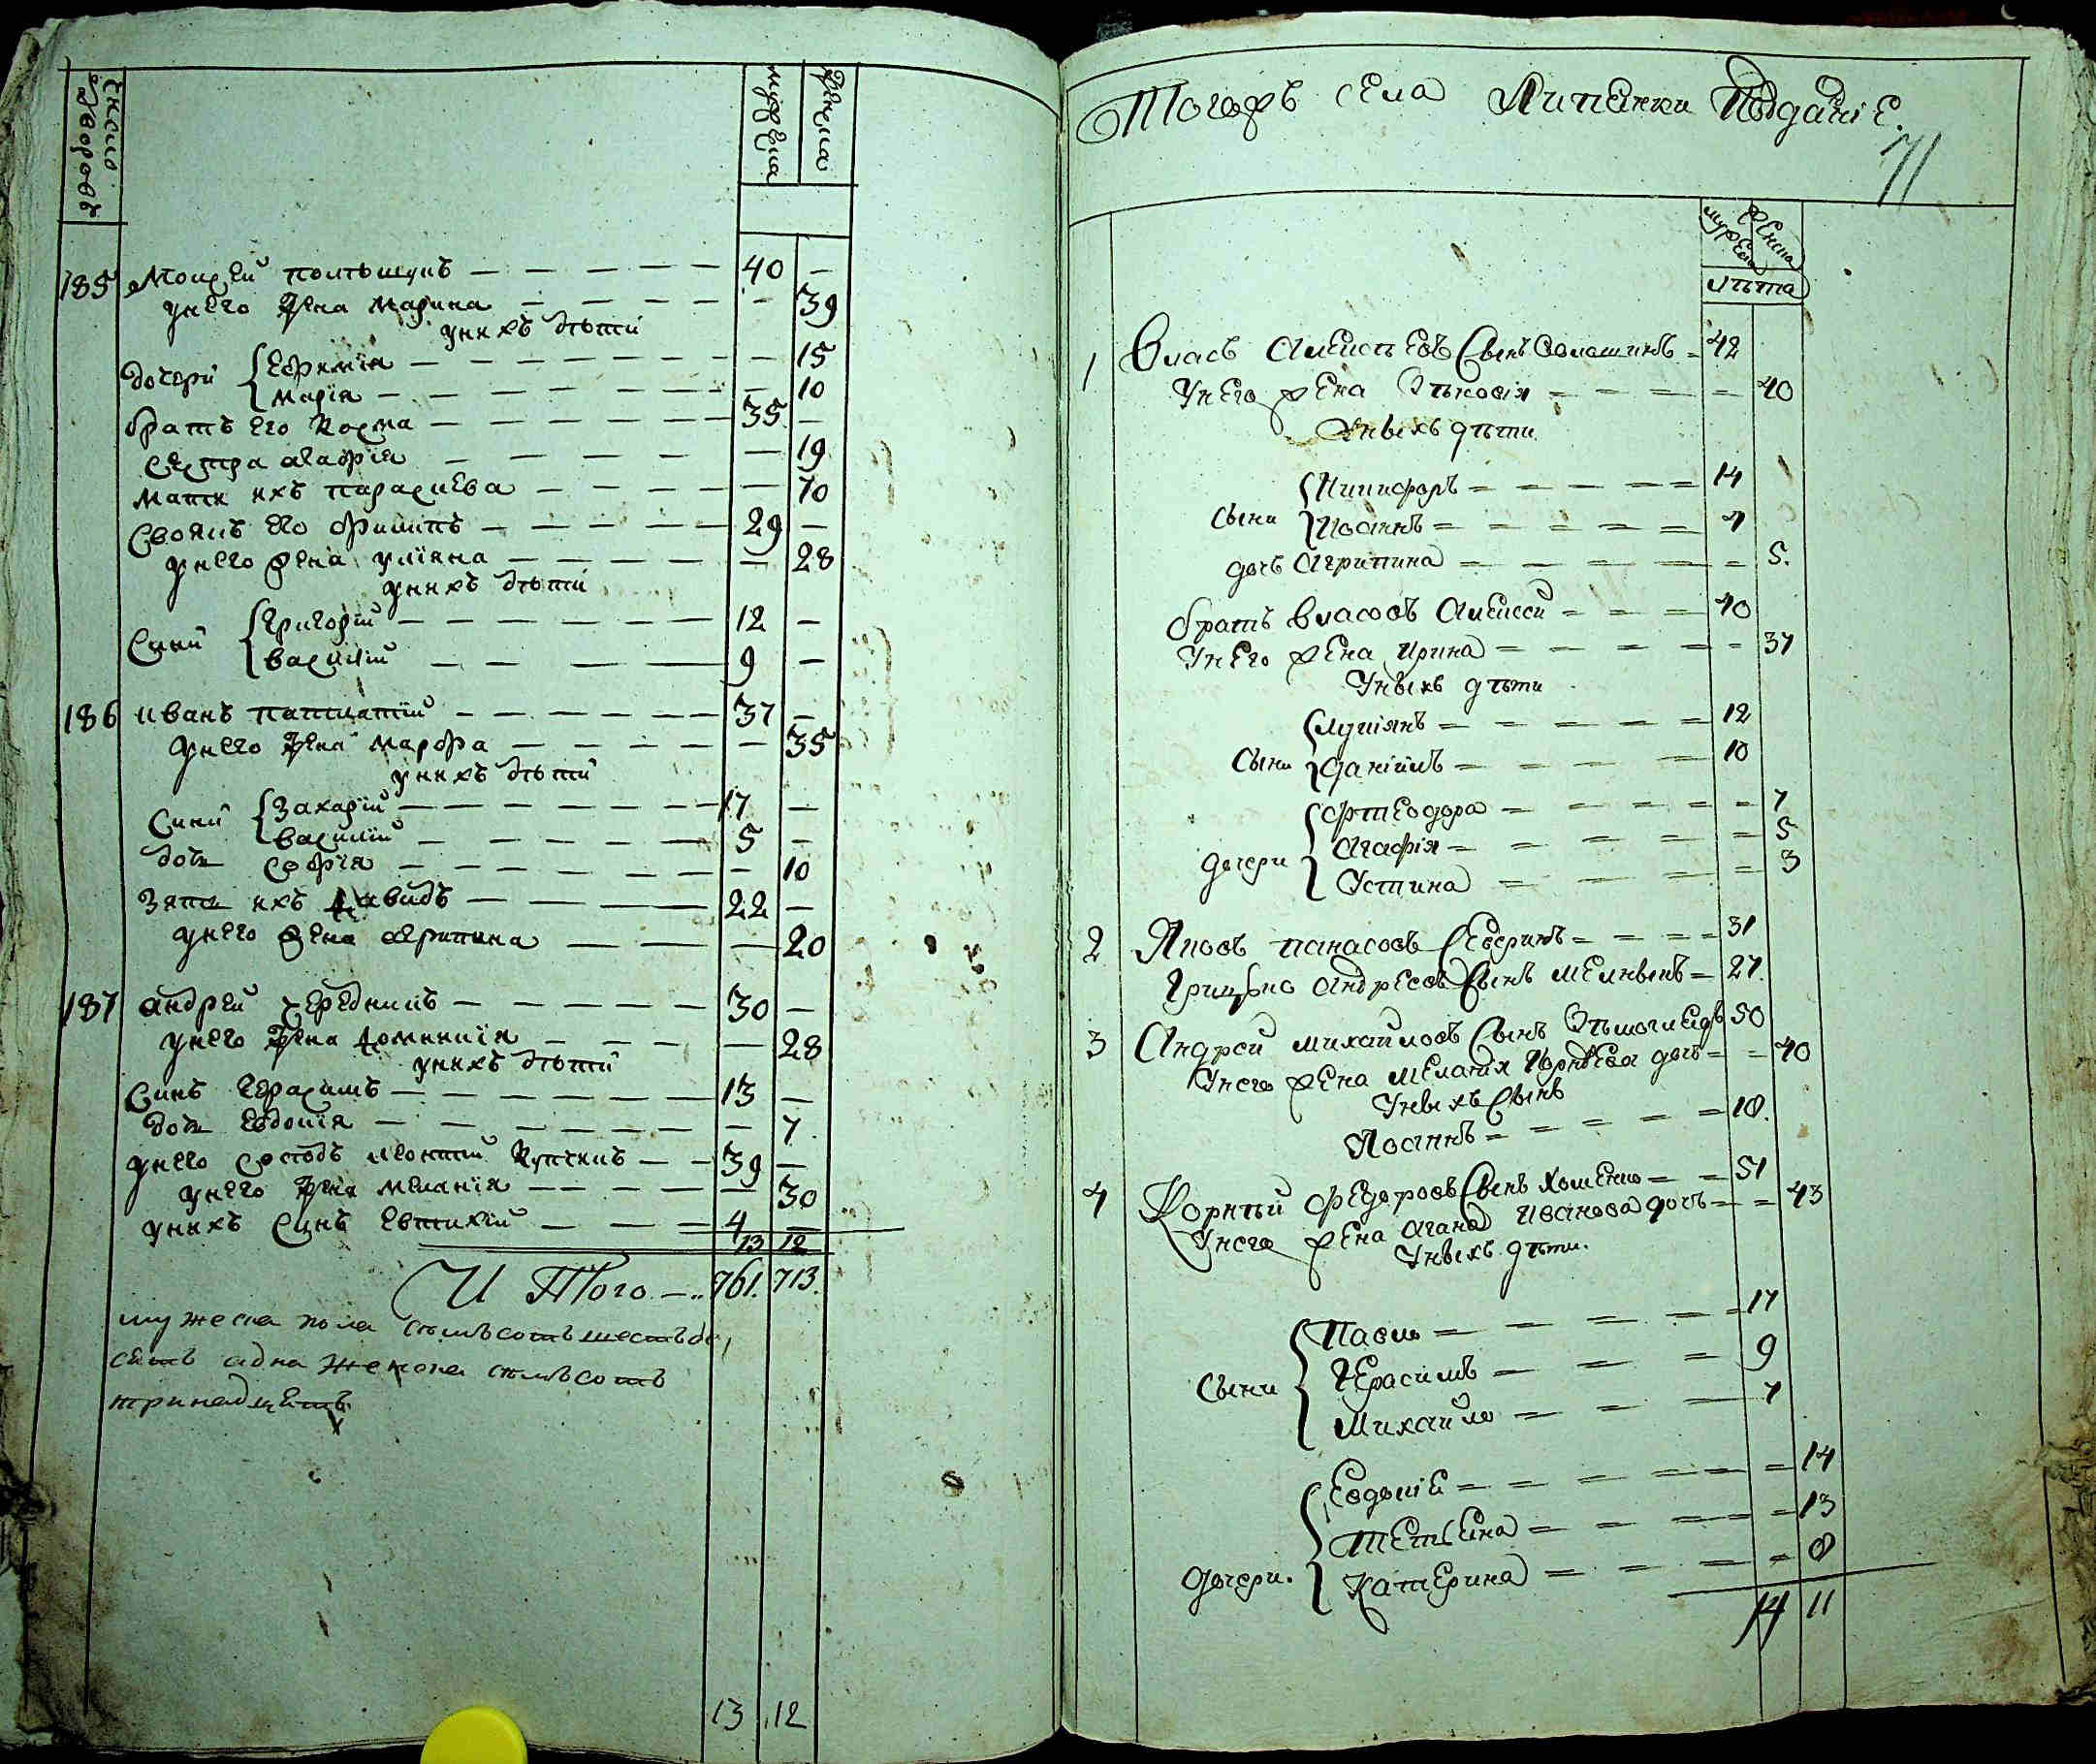 число дворовъ
мужеска
женска
185 Моисей полтыщукъ — 40 —
унего жена марина — 39
унихъ дѣти
дочери Ефимїя — 15
мария — 10
братъ его Козма — 35 —
сестра агафїя — 19
мати ихъ параскева — 70
своякъ его филипъ — 29 —
унего жена улїяна — 28
унихъ дѣти
Сини григорїй — 12 —
василїй — 9 —
186 иванъ — 37 —
унего жена марфа — 35
унихъ дѣти
Сини Захарїй — 17 —
василїй — 5 —
дочь софїя — 10
зять ихъ давидъ — 22 —
унего жена агрипина — 20
187 андрей Середникъ — 30 —
унего жена доминикїя — 28
унихъ дѣти
Синъ герасимъ — 13 —
дочь евдокїя — 7.
унего сосѣдъ леонтий — 39 —
унего жена меланїя — 30
унихъ синъ евтихїй — 4 —
13 12
И Того — 761. 713.
мужеска пола семьсотъ шестьде
сятъ адна женска семьсотъ
тринадцеть
13 12
Тогожъ села Липенки Подданїе.
71
мужеска
женска
лѣта
1 Власъ Алексѣевъ Сынъ Волошинъ = 42
Унего жена — 40
Унихъ дѣти
Сыни Никифоръ — 14
Иоаннъ — 7
дочь Агрипина — 5.
братъ власовъ Алексей — 40
Унего жена Ирина — 37
Унихъ дѣти
Сыни лукїянъ — 12
данїилъ — 10
дочери Фтеодора — 7
Агафїя — 5
Устина — 3
2 Яковъ панасовъ — 31
Грицько андреевъ Сынъ мелникъ = 27.
3 Андрей михайловъ Сынъ — 50
Унего жена меланїя Корнѣева дочь = 40
Унихъ Сынъ
Иоаннъ — 18.
4 Корнѣй федоровъ Сынъ Хоменко — 51
Унего жена агапа Иванова дочь = 43
Унихъ дѣти.
Сыни Павло — 17
Герасимъ — 9
Михайло — 7
дочери. Евдокїя — 14
Тетїена — 13
Катерина — 8
14 11